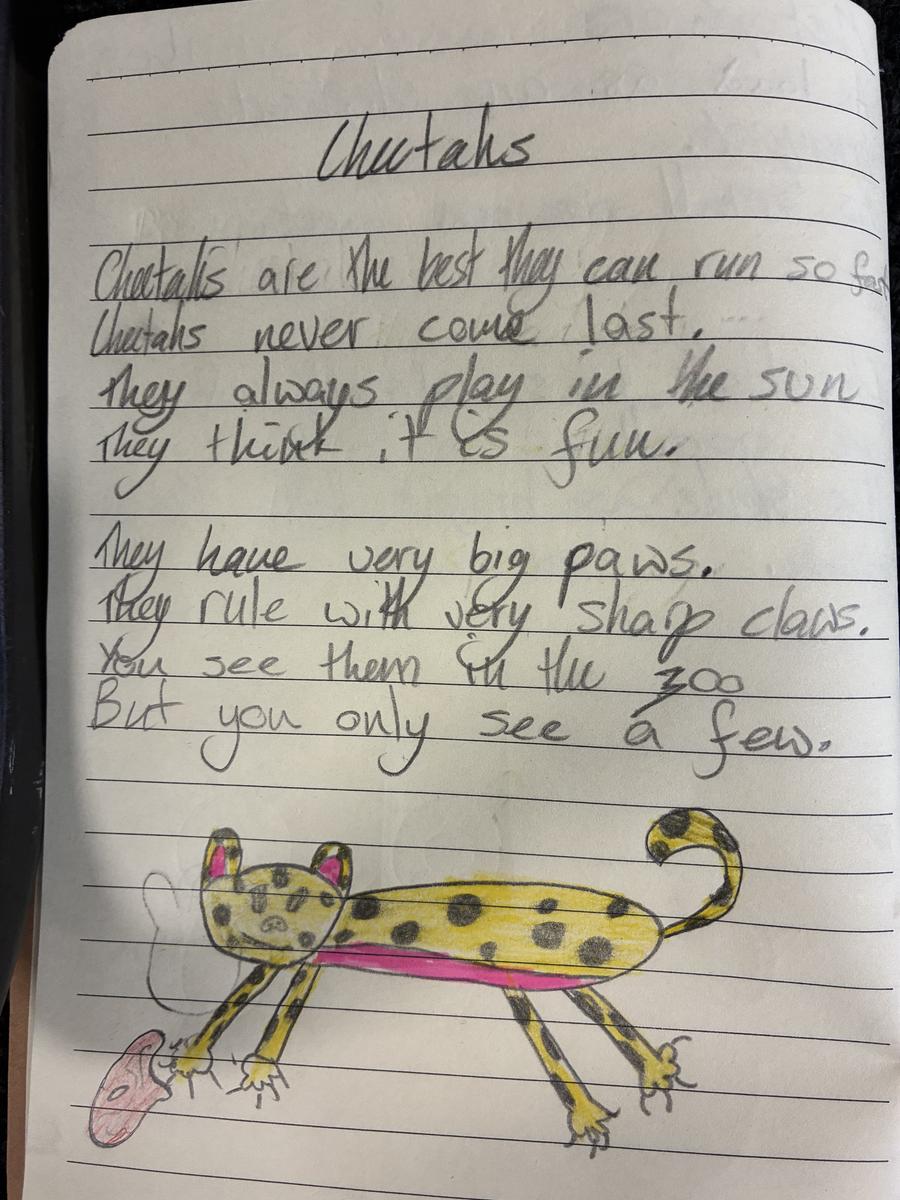 Cheetahs
Cheetahs are the best they can run so fast
Cheetahs never come last.
They always play in the sun
They think it is fun.
They have very big paws.
They rule with very sharp claws.
You see them in the zoo
But you only see a few.